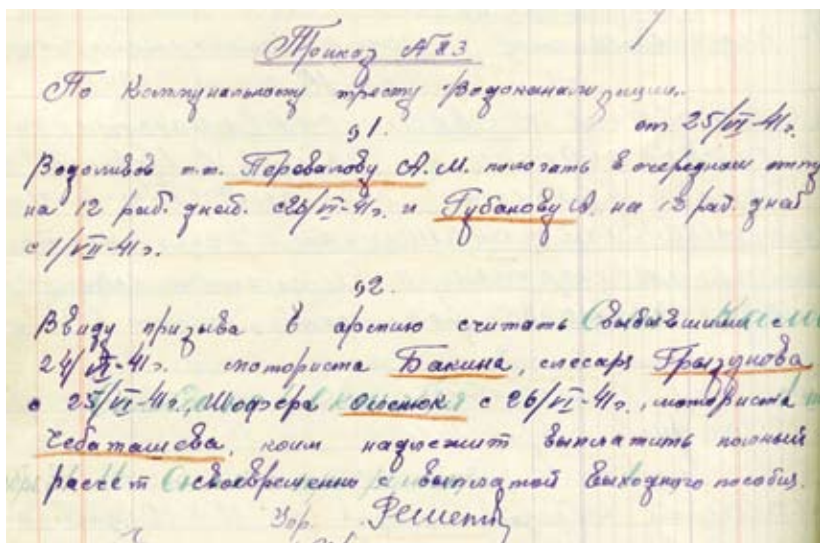 Приказ №83
По Коммунальному тресту Водоканализации.
§1. от 25/VI-41г.
Водоливов т.т. Перевалову А.М. пологать в очередном отпу
на 12 раб. дней. с 26/VI-41г. и Губанову А. на 12 раб. дней
с 1/VII-41г.
§2.
Ввиду призыва в армию считать выбывшими с
24/VI-41г. моториста Бакина, слесаря Грызунова
с 25/VI-41г., Шофера с 26/VI-41г., моториста
Чебаташева, коим надлежит выплатить полный
рассет своевременно с выплатой выходного пособия.